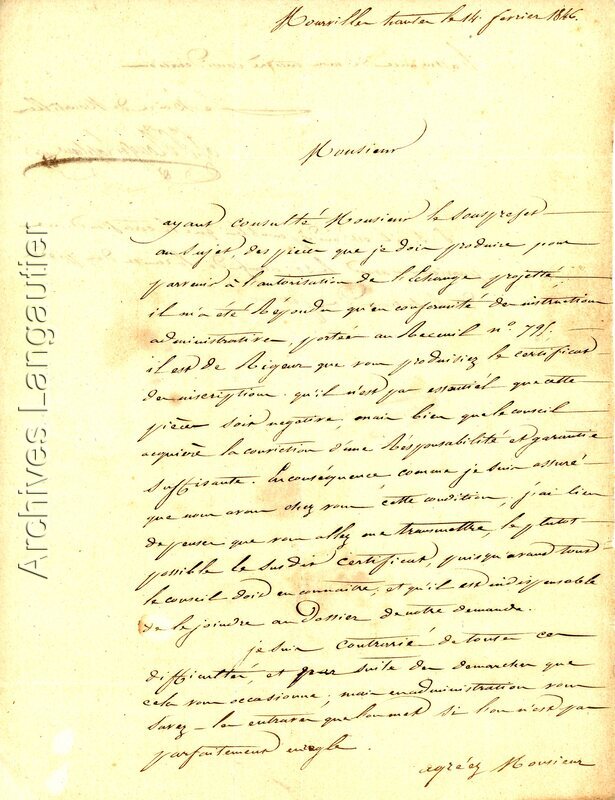 Mourvilles hautes le 14 fevrier 1846.
Monsieur
ayant consulté Monsieur le sousprefet
au sujet, des pièces que je dois produire pour
parvenir à l'autorisation de l'Echange projetté,
il m'a été Répondu qu'en conformité des instructions
administratives, portées au Recueil n.º 795.
il est de Rigeur que vous produisiez le certificat
des inscriptions, qu'il n'est pas essentiél que cette
pièce soit negative, mais bien que le conseil
acquière la conviction d'une Résponsabilité et garantie
suffisante. En conséquence comme je suis assuré
que nous avons chez vous cette condition, j'ai lieu
de penser que vous allez me transmettre, le plutot
possible le susdit certificat, puisqu'avant tout
le conseil doit en connaitre, et qu'il est indispensable
de le joindre au Dossier de notre demande.
je suis contrarié de toutes ces
difficultés, et par suite des demarches que
cela vous occasionne; mais en administration vous
savez les entraves que l'on met si l'on n'est pas
parfaitement en règle.
agréez Monsieur
Archives Langautier